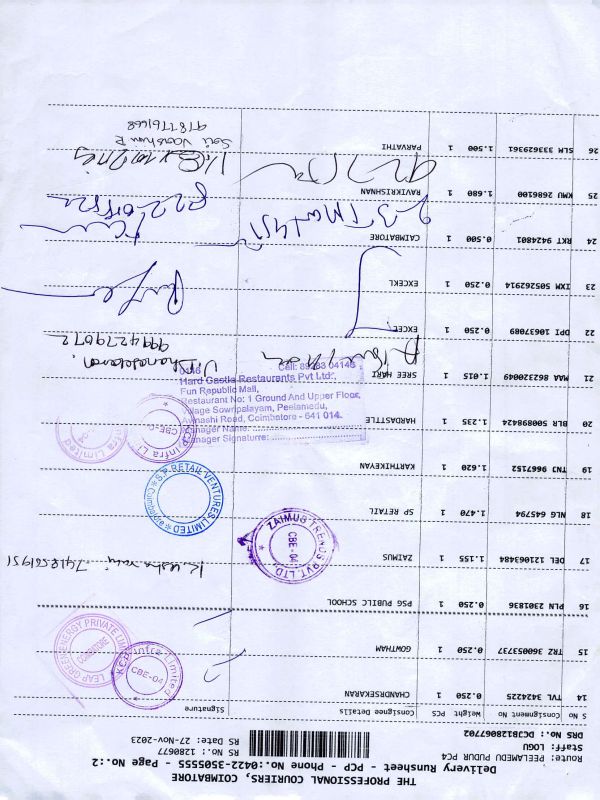 THE PROFESSIONAL COURIERS, COIMBATORE
Delivery Runsheet - PCP - Phone No.:0422-3505555 - Page No.:2
Route: PEELAMEDU PUDUR PC4
Staff: LOGU
DRS No.: DCJB128067702
RS No.: 1280677
RS Date: 27-Nov-2023
S No Consignment No Weight PCS Consignee Details Signature
14 TVL 3424225 0.250 1 CHANDRSEKARAN
15 TRZ 360053737 0.250 1 GOWTHAM
16 PLN 2301836 0.250 1 PSG PUBILC SCHOOL
17 DEL 121063484 1.155 1 ZAIMUS
18 NLG 645794 1.470 1 SP RETAIL
19 TNJ 9667152 1.620 1 KARTHIKEYAN
20 BLR 500898424 1.235 1 HARDASTLE
21 MAA 862320049 1.015 1 SREE HARI
22 DPI 10637089 0.250 1 EXCEL
23 IXM 505262914 0.250 1 EXCEKL
24 RKT 9424801 0.500 1 CAIMBATORE
25 KMU 2686100 1.680 1 RAVIKRISHNAN
26 SLM 333629361 1.500 1 PARVATHI
KCP Infra Limited
CBE-04
LEAP GREEN ENERGY PRIVATE LIMITED
COIMBATORE
ZAIMUS TRENDS PVT. LTD.
CBE-04
7418561951
S.P. RETAIL VENTURES LIMITED
Infra Limited
Cell: 89283 04145
Hard Castle Restaurants Pvt Ltd.,
Fun Republic Mall,
Restaurant No: 1 Ground And Upper Floor,
Village Sowripalayam, Peelamedu,
Avinashi Road, Coimbatore - 641 014.
Manager Name:
Manager Signature:
Dhanasekaran
9994279072
9787761668